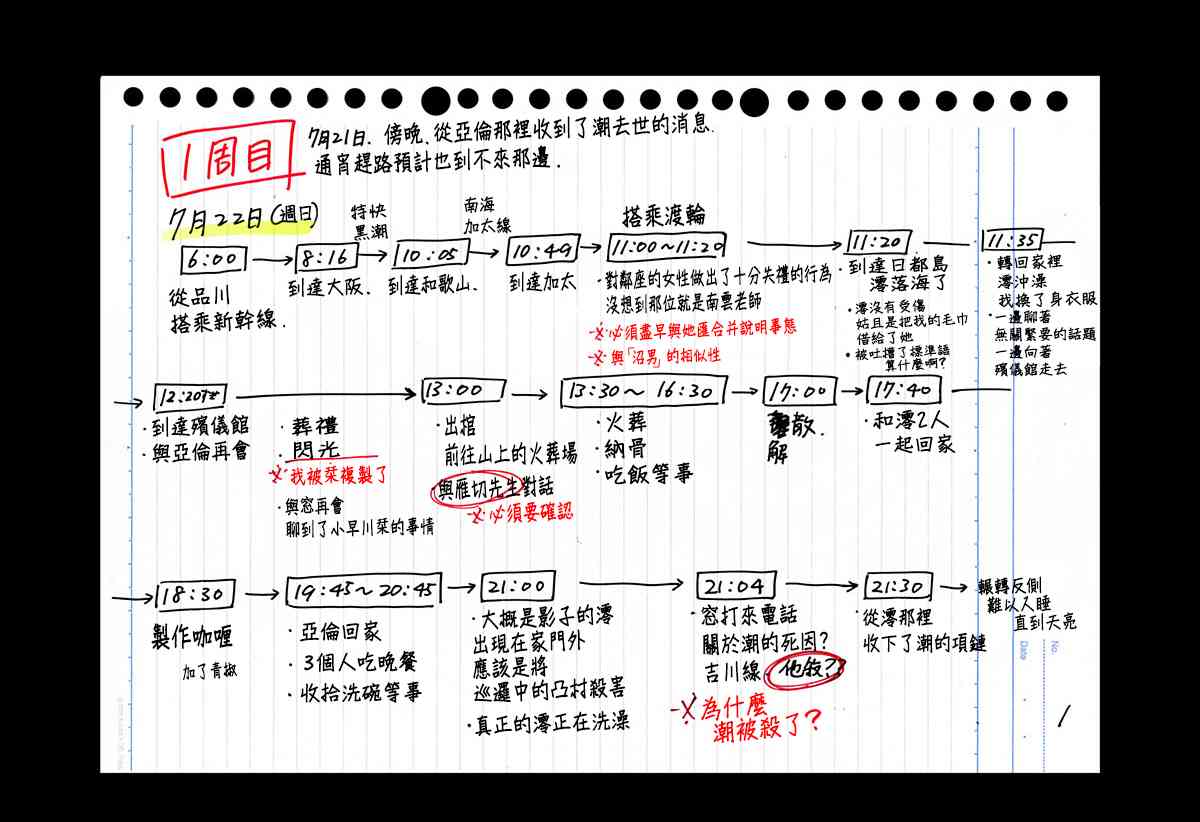 1周目
7月21日. 傍晚、從亞倫那裡收到了潮去世的消息.
通宵趕路預計也到不來那邊.
7月22日(週日)
特快
黑潮
南海
加太線
搭乘渡輪
6:00
8:16
10:05
10:49
11:00~11:20
11:20
11:35
從品川
搭乘新幹線.
到達大阪、
到達和歌山、
到達加太
・對鄰座的女性做出了十分失禮的行為
沒想到那位就是南雲老師
※必須盡早與她匯合并說明事態
※與「沼男」的相似性
・到達日都島
澪落海了
・澪沒有受傷
姑且是把我的毛巾
借給了她
・被吐槽了標準語
算什麼啊?
・轉回家裡
澪沖澡
我換了身衣服
・一邊聊著
無關緊要的話題
一邊向著
殯儀館走去
12:20すぎ
13:00
13:30~16:30
17:00
17:40
・到達殯儀館
・與亞倫再會
・葬禮
・閃光
※我被栞複製了
・與窓再會
聊到了小早川栞的事情
・出棺
前往山上的火葬場
與雁切先生對話
※必須要確認
・火葬
・納骨
・吃飯等事
散.
解
・和澪2人
一起回家
18:30
19:45~20:45
21:00
21:04
21:30
製作咖喱
加了青椒
・亞倫回家
・3個人吃晚餐
・收拾洗碗等事
・大概是影子的澪
出現在家門外
應該是將
巡邏中的凸村殺害
・真正的澪正在洗澡
・窓打來電話
關於潮的死因?
吉川線. 他殺??
※為什麼
潮被殺了?
・從澪那裡
收下了潮的項鏈
輾轉反側
難以入睡
直到天亮
No.
Date
1